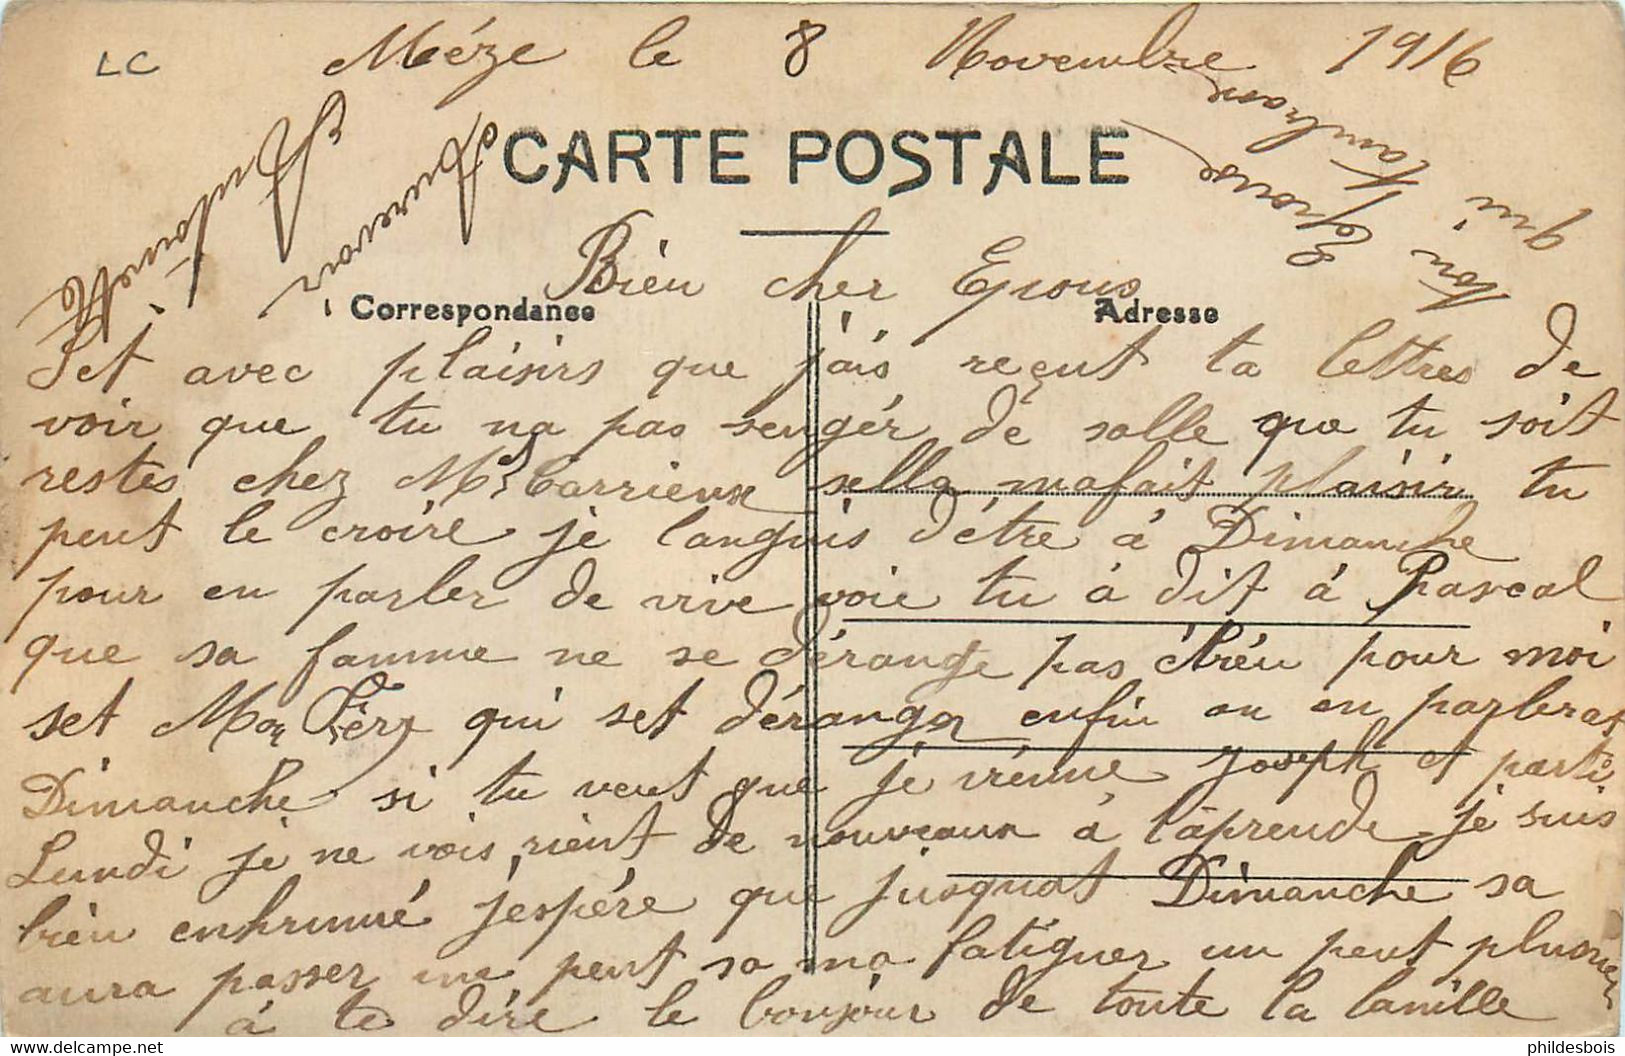 LC
Mèze le 8 Novembre 1916
CARTE POSTALE
Bien cher Epous
Correspondance
Adresse
Set avec plaisirs que j'ais reçut ta lettres de
voir que tu na pas sengér de salle que tu soit
restes chez Mr Carrieux sella mafait plaisir tu
peut le croire je languis d'être à Dimanche
pour en parler de vive voie tu á dit á Pascal
que sa famme ne se dérange pas pour moi
set Mon Père qui set déranger enfin on en parlerat
Dimanche si tu veut que je viénne Joseph et parti
Lundi je ne vois rient de nouveaux á t'aprende je suis
bien enhrumé j'espére que jusquat Dimanche sa
aura passer une peut sa ma fatiguer un peut
á te dire le bonjour de toute la famille
Aurevoir
ton Epouse
qui